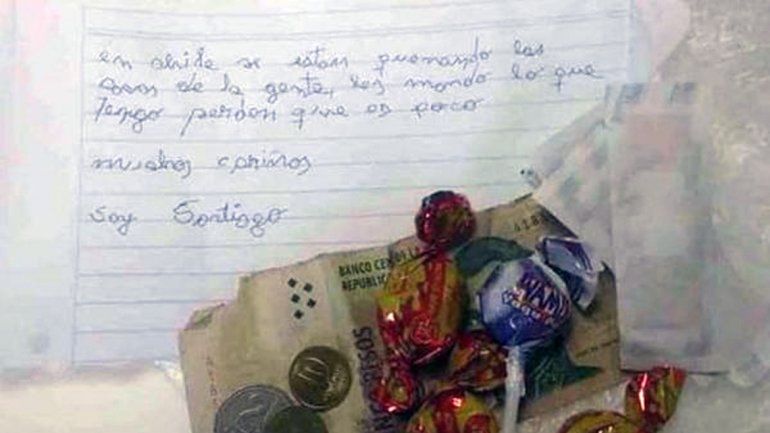 en chile se estan quemando las
casas de la gente, les mando lo que
Tengo perdon que es poco
muchos cariños
soy Santiago
BANCO CEN DE LA
REPUBLIC
PESOS
10
WAMI